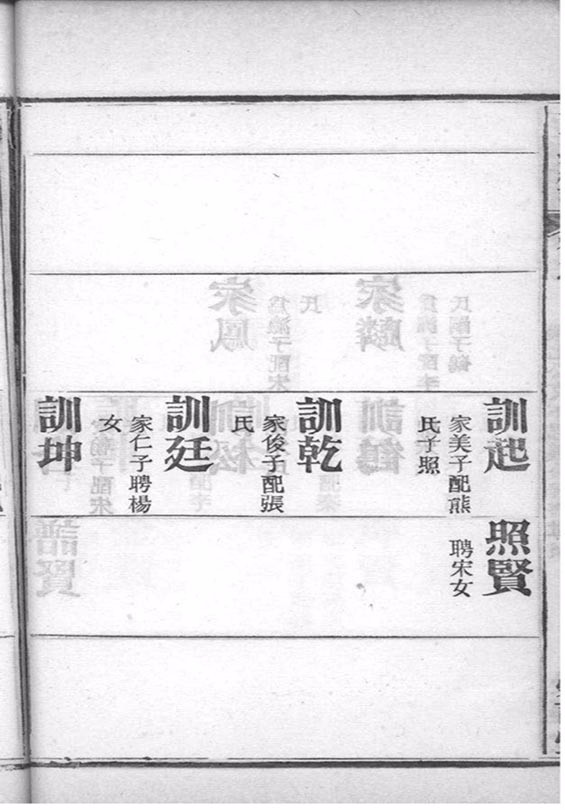 訓起
家美子配熊
氏子照
照賢
聘宋女
訓乾
家俊子配張
氏
訓廷
家仁子聘楊
女
訓坤